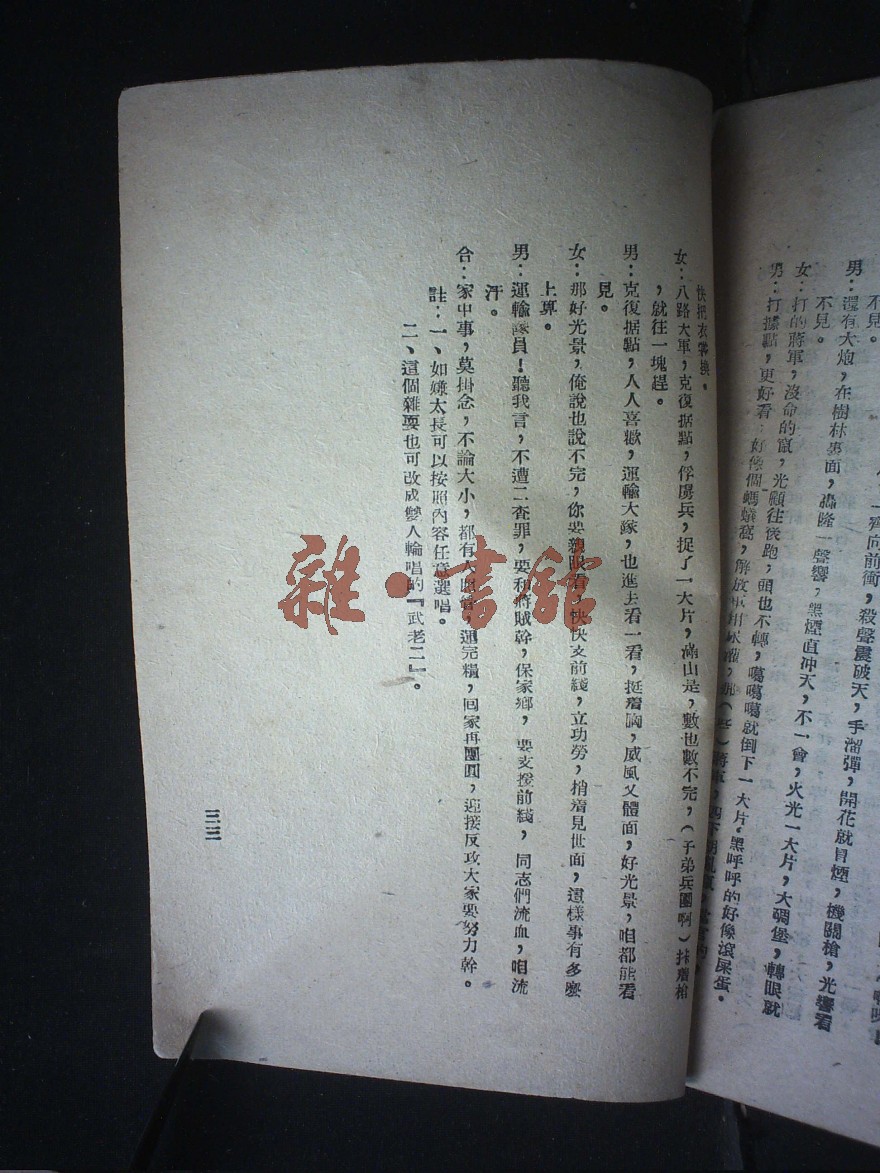 不見。
男：還有大炮，在樹林裏面，轟隆一聲響，黑煙直冲天，不一會，火光一大片，大碉堡，轉眼就
不見。
女：打的蔣軍，沒命的竄，光顧往後跑，頭也不轉，噶噶噶就倒下一大片，黑呼呼的好像滾屎蛋。
男：打據點，更好看，好像個螞蟻窩，解放
一齊向前衝，殺聲震破天，手溜彈，開花就冒煙，機關槍，光響看
快把衣裳換。
女：八路大軍，克復据點，俘虜兵，捉了一大片，滿山是，數也數不完，（子弟兵團啊）抹着槍
，就往一塊趕。
男：克復据點，人人喜歡，運輸大隊，也進去看一看，挺着胸，威風又體面，好光景，咱都能看
見。
女：那好光景，俺說也說不完，你要親眼看，快快支前綫，立功勞，梢着見世面，這樣事有多麼
上算。
男：運輸隊員！聽我言，不遭二查罪，要和蔣賊幹，保家鄉，要支援前綫，同志們流血，咱流
汗。
合：家中事，莫掛念，不論大小，都有人照管，運完糧，回家再團圓，迎接反攻大家要努力幹。
註：一、如嫌太長可以按照內容任意選唱。
二、這個雜耍也可改成雙人輪唱的『武老二』。
三三
雜·書館